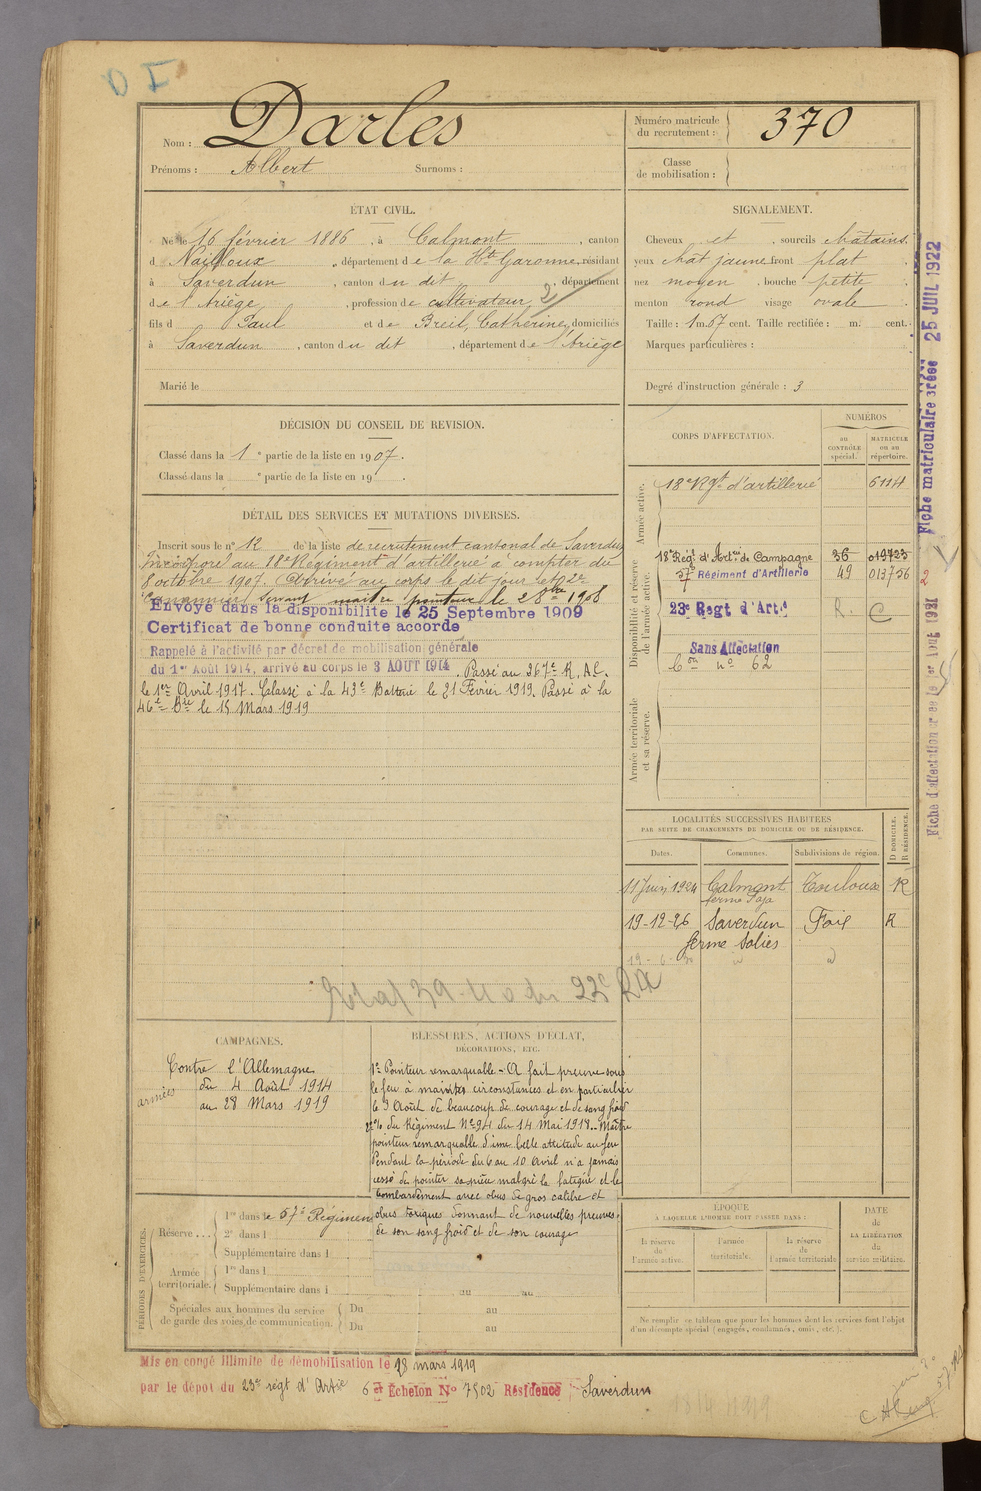 D I
Nom : Darles
Prénoms : Albert Surnoms :
Numéro matricule du recrutement : 370
Classe de mobilisation :
ÉTAT CIVIL.
Né le 16 février 1886, à Calmont, canton
d Nailloux, département de la Hte Garonne, résidant
à Saverdun, canton du dit, département
de l'Ariège, profession de cultivateur 2/
fils d Paul et de Breil, Catherine, domiciliés
à Saverdun, canton du dit, département de l'Ariège
Marié le
SIGNALEMENT.
Cheveux et, sourcils châtains.
yeux chât jaune front plat
nez moyen, bouche petite
menton rond visage ovale
Taille : 1 m. 67 cent. Taille rectifiée : m. cent.
Marques particulières :
Degré d'instruction générale : 3
DÉCISION DU CONSEIL DE REVISION.
Classé dans la 1e partie de la liste en 1907.
Classé dans la e partie de la liste en 19 .
DÉTAIL DES SERVICES ET MUTATIONS DIVERSES.
Inscrit sous le n° 12 de la liste de recrutement cantonal de Saverdun
Incorporé au 18e Régiment d'artillerie à compter du
8 octobre 1907. Arrivé au corps le dit jour et 2e
Canonnier servant maître pointeur le 28 1908
Envoyé dans la disponibilité le 25 Septembre 1909
Certificat de bonne conduite accordé
Rappelé à l'activité par décret de mobilisation générale
du 1er Août 1914, arrivé au corps le 3 AOUT 1914. Passé au 267e R.A.C.
le 1er Avril 1917. Classé à la 43e Batterie le 21 Février 1919. Passé à la
46e Bie le 15 Mars 1919
CORPS D'AFFECTATION.
NUMÉROS
au CONTRÔLE spécial.
MATRICULE ou au répertoire.
Armée active.
18e Rgt d'artillerie 6114
Disponibilité et réserve de l'armée active.
18e Régt d'Artrie de Campagne 36 019723
57e Régiment d'Artillerie 49 013756
23e Regt d'Artie R. C
Sans Affectation
no 62
Armée territoriale et sa réserve.
Fiche matriculaire créée 25 JUIL 1922
Fiche d'affectation créée le 1er Aout 1921
2
LOCALITÉS SUCCESSIVES HABITÉES
PAR SUITE DE CHANGEMENTS DE DOMICILE OU DE RÉSIDENCE.
Dates. Communes. Subdivisions de région. D DOMICILE. R RÉSIDENCE.
11 Juin 1924 Calmont Toulouse R
ferme
19-12-26 Saverdun Foix R
ferme Salies
22e RA
CAMPAGNES.
Contre l'Allemagne
armées du 4 Août 1914
au 28 Mars 1919
BLESSURES, ACTIONS D'ÉCLAT,
DÉCORATIONS, ETC.
Pointeur remarquable - A fait preuve sous
le feu à maintes circonstances et en particulier
le 3 Août de beaucoup de courage et de sang froid
du Régiment No 94 du 14 Mai 1918. Maître
pointeur remarquable d'une belle attitude au feu
Pendant la période du 6 au 10 Avril n'a jamais
cessé de pointer sa pièce malgré la fatigue et le
bombardement avec obus de gros calibre et
obus toxiques donnant de nouvelles preuves
de son sang froid et de son courage
PÉRIODES D'EXERCICES.
Réserve... 1re dans le 57e Régiment
2e dans l
Supplémentaire dans l
Armée territoriale. 1re dans l
Supplémentaire dans l au au
Spéciales aux hommes du service de garde des voies de communication. Du au
Du au
ÉPOQUE
À LAQUELLE L'HOMME DOIT PASSER DANS :
la réserve de l'armée active.
l'armée territoriale.
la réserve de l'armée territoriale
DATE de LA LIBÉRATION du service militaire.
Ne remplir ce tableau que pour les hommes dont les services font l'objet
d'un décompte spécial (engagés, condamnés, omis, etc.).
Mis en congé illimité de démobilisation le 28 mars 1919
par le dépot du 23e régt d'Artie 6 et Echelon No 7502 Résidence Saverdun